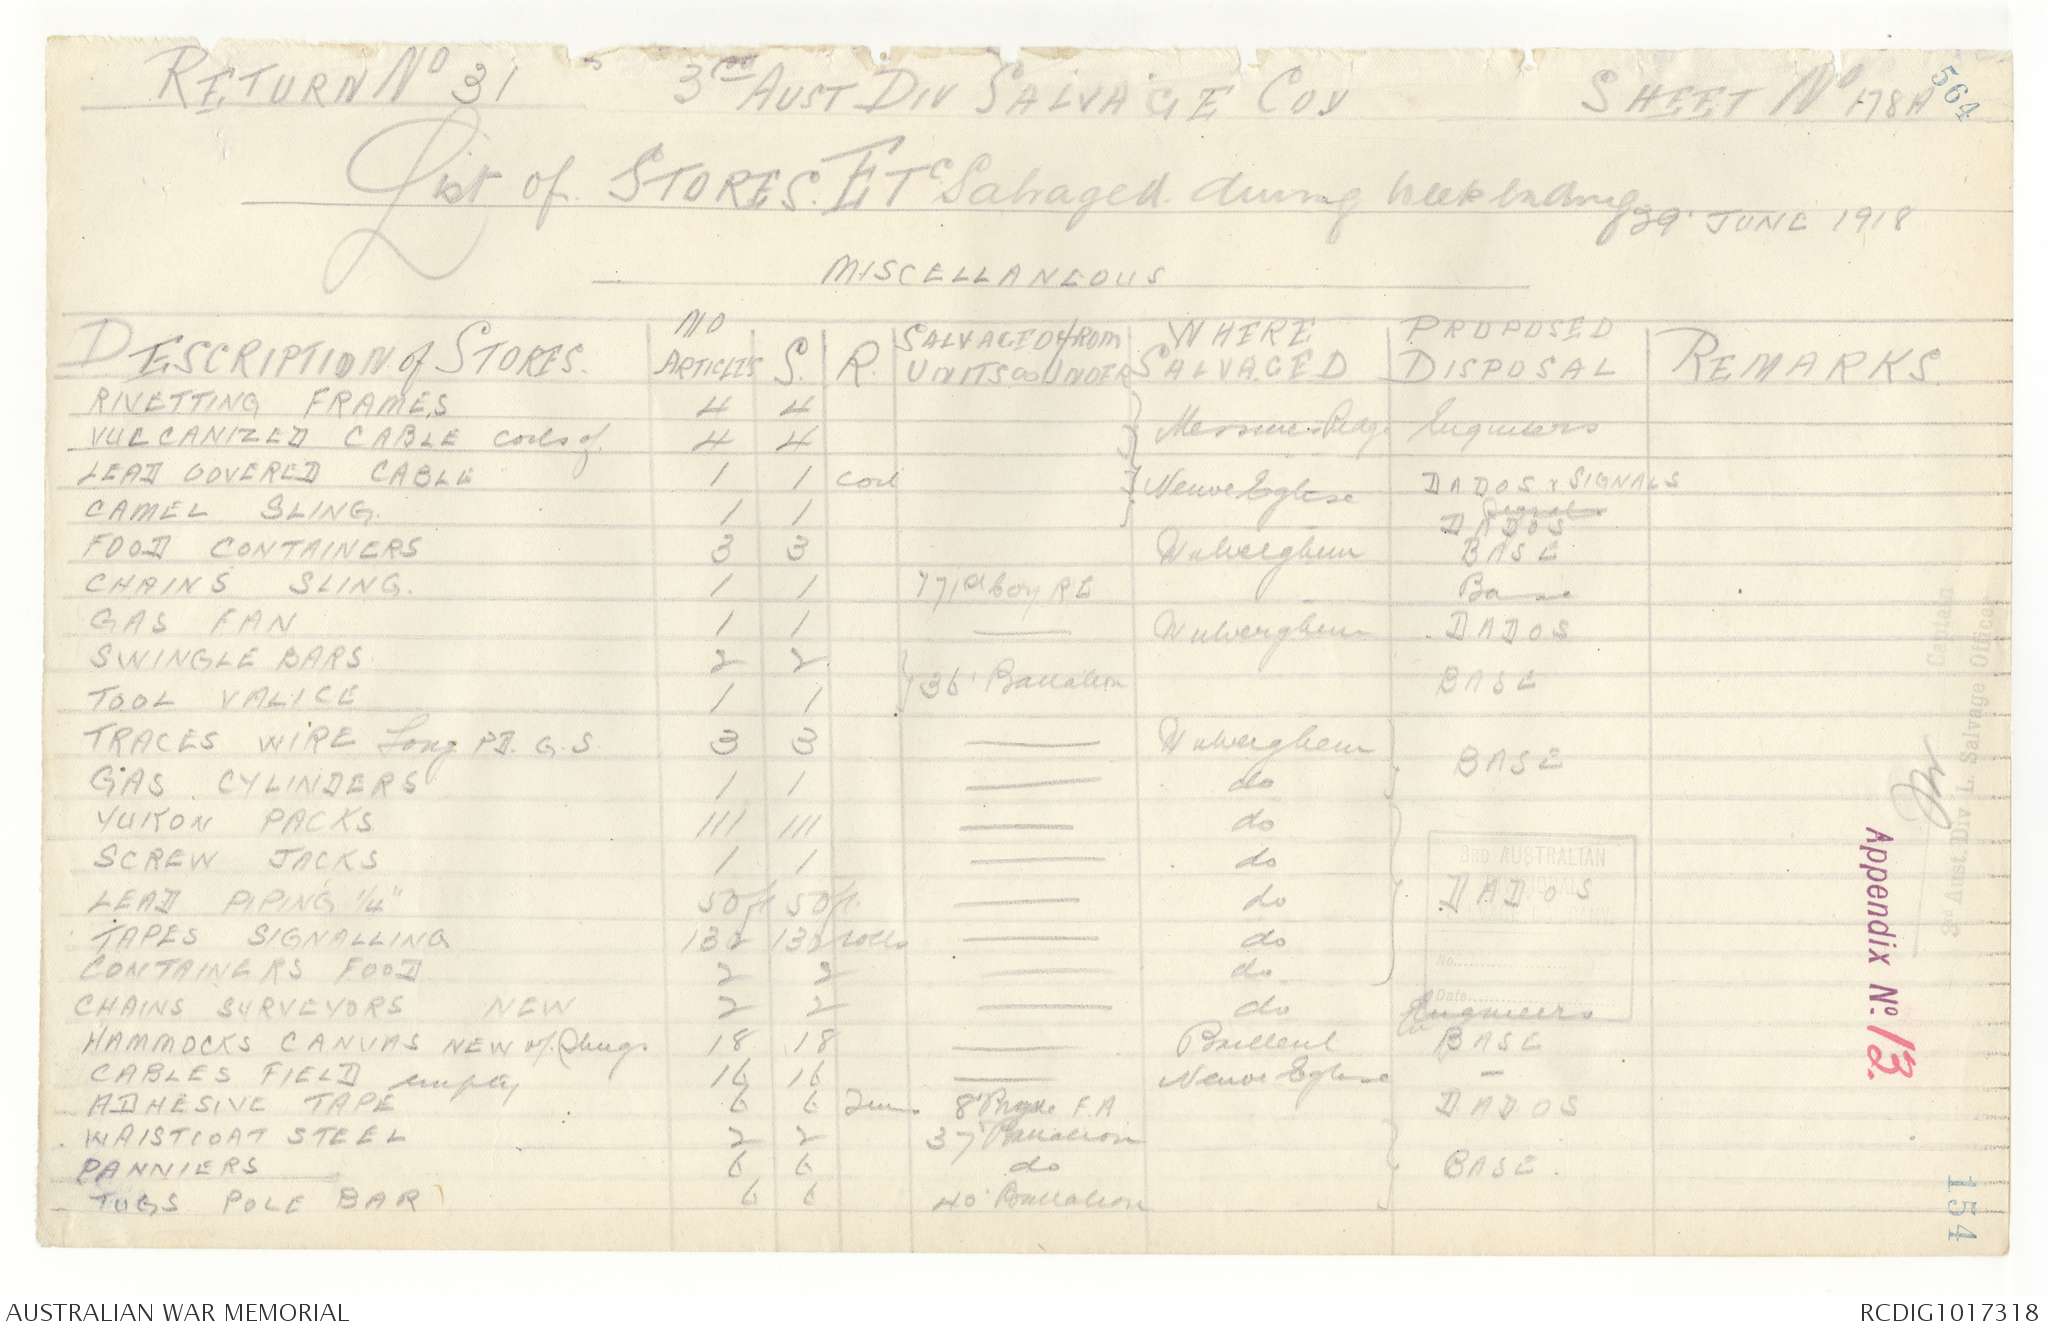 RETURN No 31 3rd AUST DIV SALVAGE COY SHEET No 178A 564
List of STORES. ETC Salvaged during Week Ending 29 JUNE 1918
MISCELLANEOUS
DESCRIPTION of STORES. NO ARTICLES S. R. SALVAGED from UNITS as UNDER WHERE SALVAGED PROPOSED DISPOSAL REMARKS
RIVETTING FRAMES 4 4 Messines Ridge Engineers
VULCANIZED CABLE coils of. 4 4
LEAD COVERED CABLE 1 1 coil Neuve Eglise DADOS & SIGNALS
CAMEL SLING. 1 1 DADOS
FOOD CONTAINERS 3 3 Wulverghem BASE
CHAINS SLING. 1 1 171st Coy RE Base
GAS FAN 1 1 — Wulverghem DADOS
SWINGLE BARS 2 2 36' Battalion BASE
TOOL VALICE 1 1
TRACES WIRE Long PD. G.S. 3 3 — Wulverghem BASE
GAS CYLINDERS 1 1 — do
YUKON PACKS 111 111 — do
SCREW JACKS 1 1 — do
LEAD PIPING 1/4" 50ft 50ft. — do DADOS
TAPES SIGNALLING 132 132 rolls — do
CONTAINERS FOOD 2 2 — do
CHAINS SURVEYORS NEW 2 2 — do Engineers
HAMMOCKS CANVAS NEW 18 18 — Bailleul BASE
CABLES FIELD empty 16 16 — Neuve Eglise —
ADHESIVE TAPE 6 6 8' F.A DADOS
WAISTCOAT STEEL 2 2 37' Battalion
PANNIERS 6 6 do BASE.
TUGS POLE BAR 6 6 40' Battalion
3RD AUSTRALIAN
DIVISIONAL
SALVAGE COMPANY
No.
Date
Captain
3rd Aust. Div'l. Salvage Officer
Appendix No. 13.
154
AUSTRALIAN WAR MEMORIAL RCDIG1017318